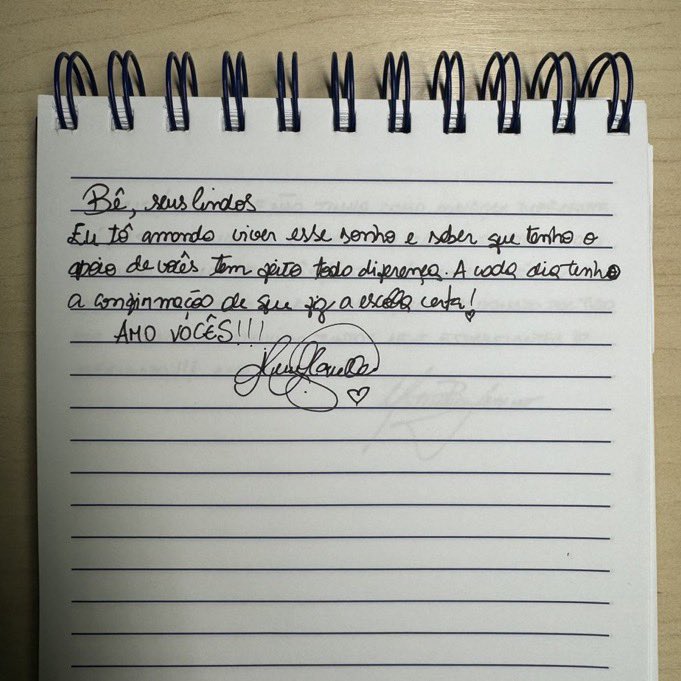 Bê, seus lindos
Eu tô amando viver esse sonho e saber que tenho o
apoio de vocês tem feito toda diferença. A cada dia tenho
a confirmação de que fiz a escolha certa!
AMO VOCÊS!!!